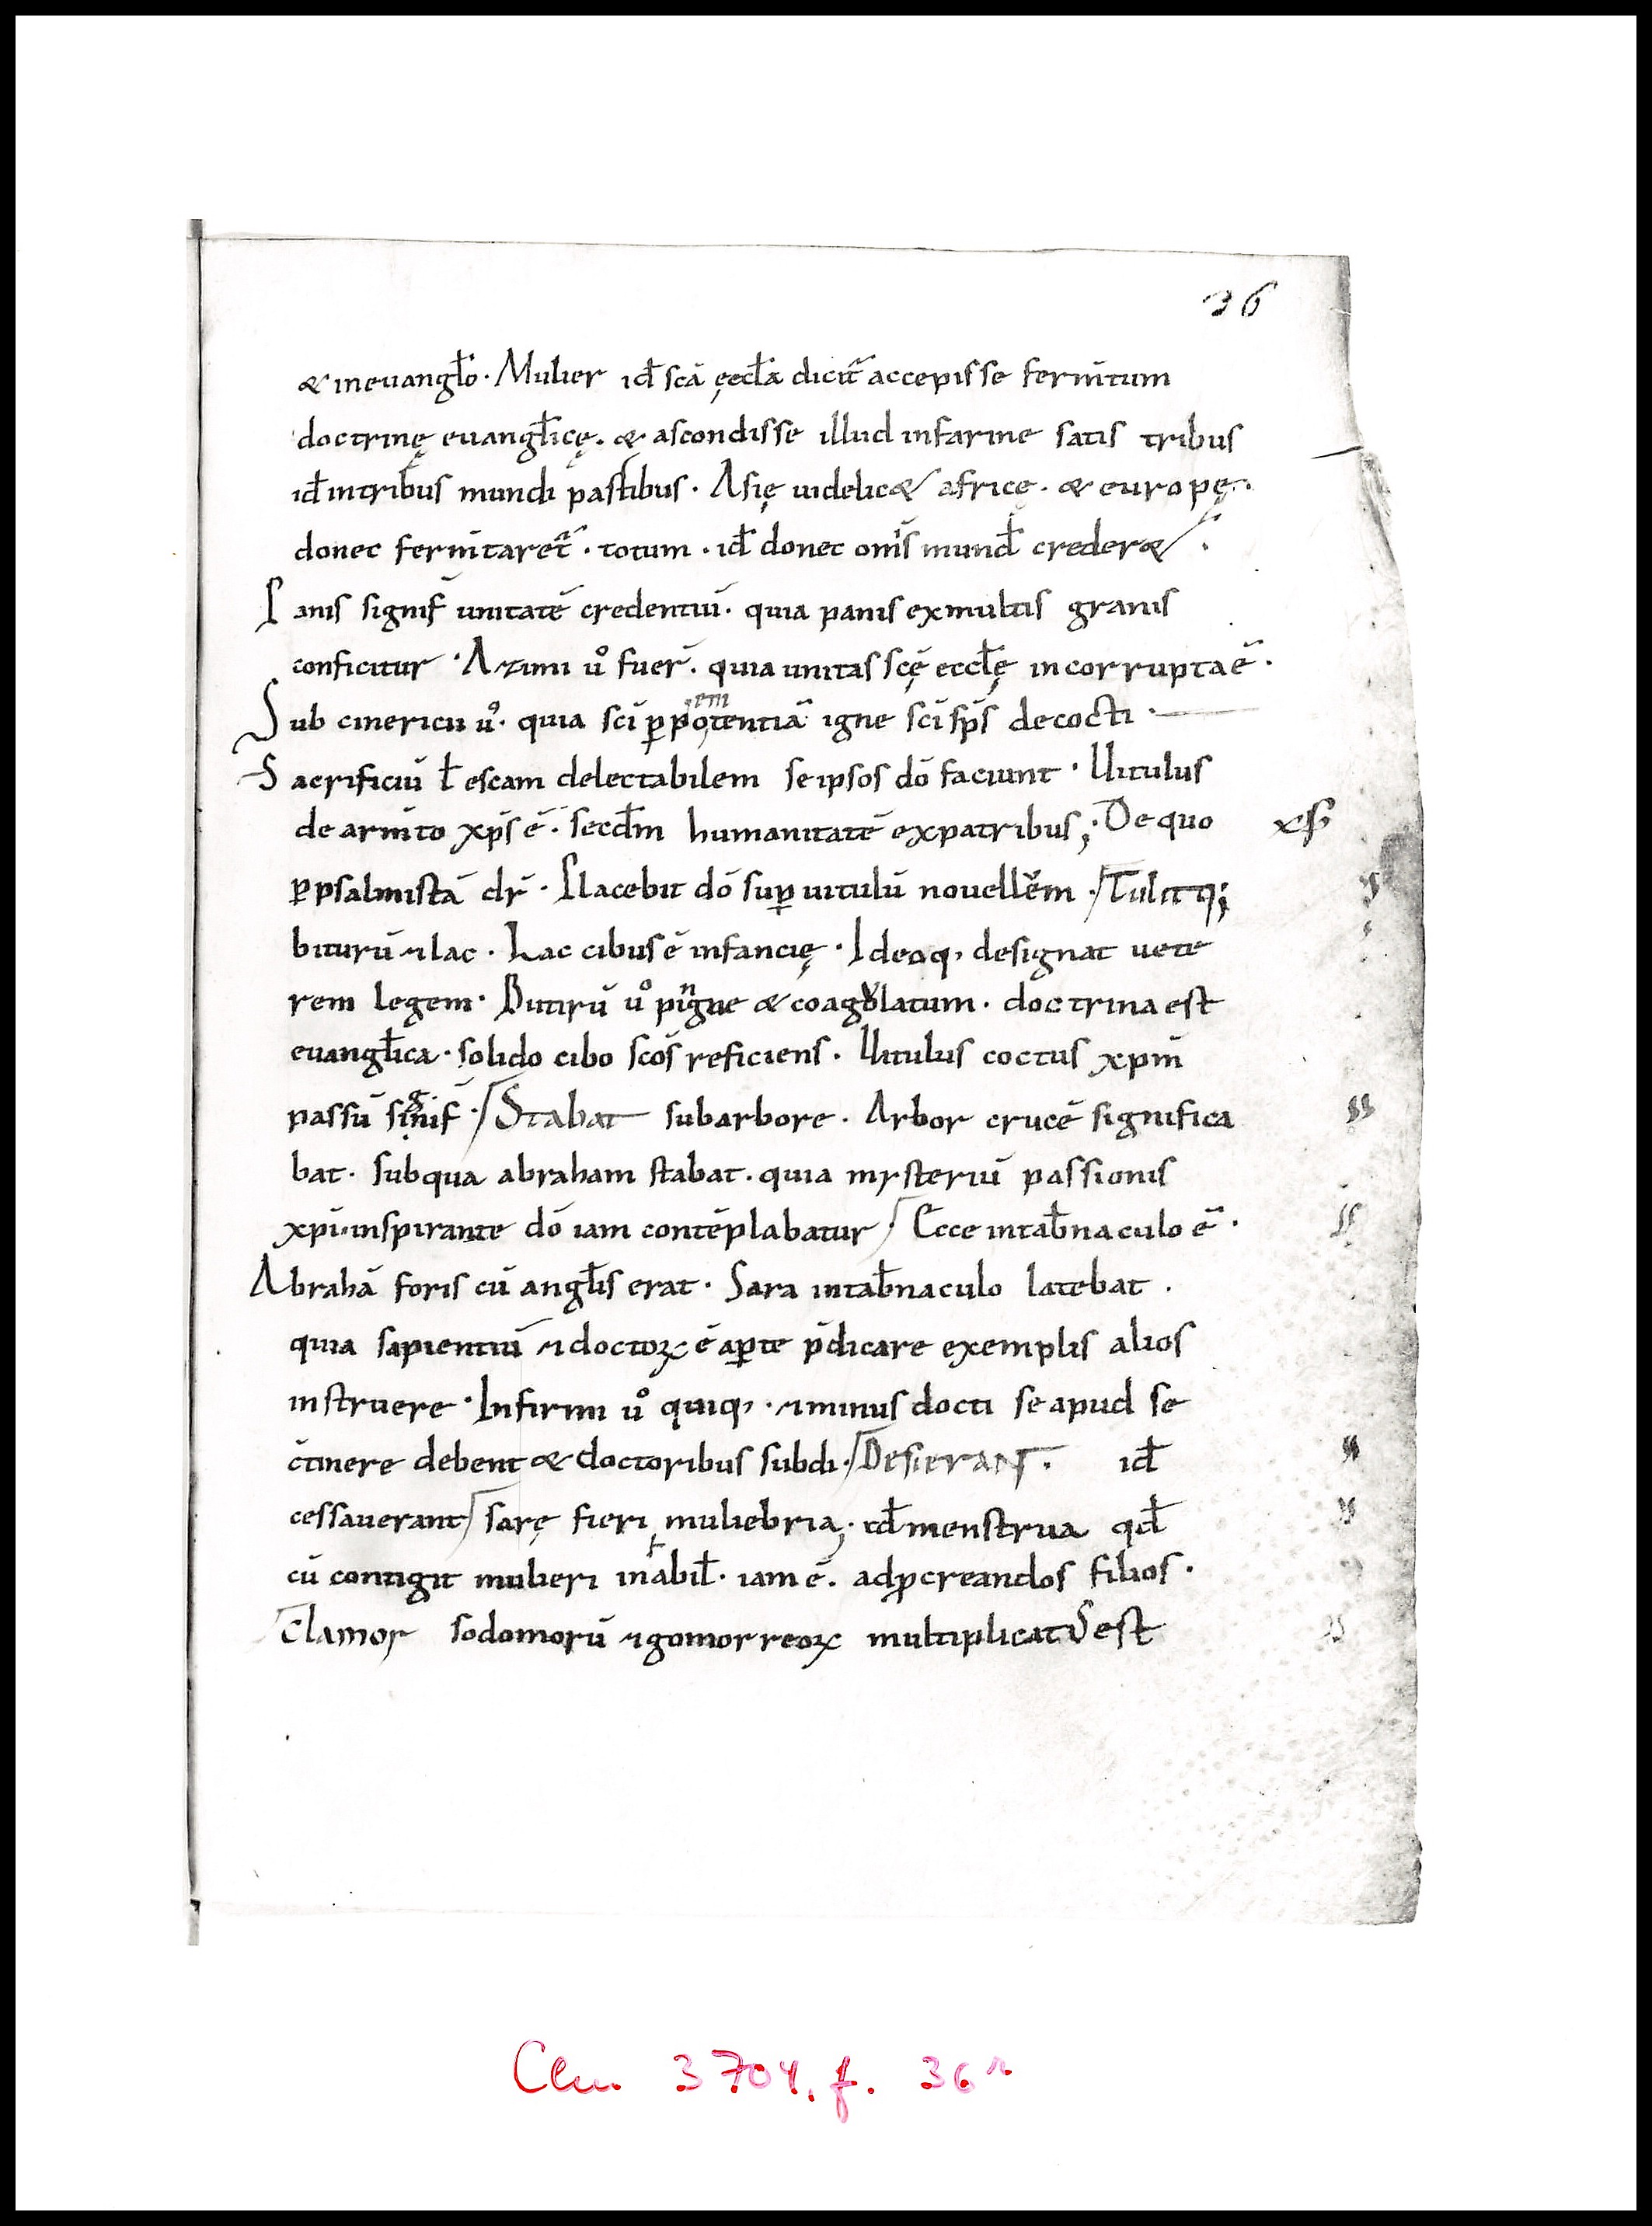 36
& in euangl̄o · Mulier id̄ scā ęccl̄a dicit᷑ accepisse fermtū̄m
doctrinę euangl̄icę · & ascondisse illud in farine satis tribus
id̄ in tribus mundi partibus · Asię uidelic& africę · & europę ·
donecferm̄taret᷑ · totum · id̄ donec om̄s mund̄ creder& ·
Panis signif̄ unitatē credentiū · quia panis ex multis granis
conficitur · Azimi ů fuer̄ · quia unitas scę̄ eccl̄ę incorrupta ē ·
Sub cinericii ů · quia sc̄i ꝑ potentiā igne sc̄i sp̄s decocti ·
Sacrificiū ł escam delectabilem se ipsos dō faciunt · Uitulus
de arm̄to xp̄s ē · secd̄m humanitatē ex patribus ; De quo
ꝑ psalmistā dr̄ · Placebit dō suꝑ uitulū nouellum · Tulitq;
biturū ⁊ lac · Lac cibus ē infancię · Ideoq, designat uete
rem legem · Butirū ů pingue & coagolatum · doctrina est
euangl̄ica · solido cibo scōs reficiens · Uitulus coctus xp̄m
passū signif̄ · Stabat sub arbore · Arbor crucē significa
bat · sub qua abraham stabat · quia mysteriū passionis
xp̄i · inspirante dō iam contēplabatur · Ecce in tab̄naculo ē ·
Abrahā foris cū angl̄is erat · Sara in tab̄naculo latebat ·
quia sapientiū ⁊ doctoꝝ ē aꝑte p̄dicare exemplis alios
instruere · Infirmi ů quiq, · ⁊ minus docti se apud se
c̄tinere debent & doctoribus subdi · Desierant · id̄
cessauerant sarę fieri muliebria; · id̄ menstrua qd̄
cū contigit mulieri inabil̄ · iam ē · ad ꝓcreandos filios ·
Clamor sodomorū ⁊ gomorreoꝝ multiplicatus est
Clm. 3704, f. 36r